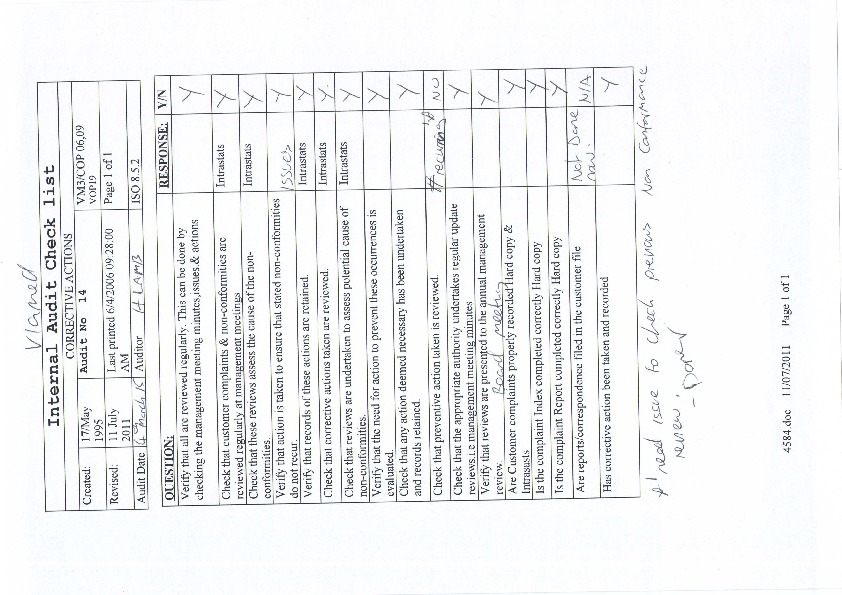 Vlamed
Internal Audit Check list
CORRECTIVE ACTIONS
Created: 17/May 1995 Audit No 14 VM3/COP 06,09 VOP19
Revised: 11 July 2011 Last printed 6/4/2006 09:28:00 AM Page 1 of 1
Audit Date 6th March 15 Auditor H LAMB ISO 8.5.2
QUESTION: RESPONSE: Y/N
Verify that all are reviewed regularly. This can be done by Y
checking the management meeting minutes,issues & actions
Check that customer complaints & non-conformities are Intrastats Y
reviewed regularly at management meetings
Check that these reviews assess the cause of the non- Intrastats Y
conformities.
Verify that action is taken to ensure that stated non-conformities issues Y
do not recur.
Verify that records of these actions are retained. Intrastats Y
Check that corrective actions taken are reviewed. Intrastats Y
Check that reviews are undertaken to assess potential cause of Intrastats Y
non-conformities.
Verify that the need for action to prevent these occurrences is Y
evaluated.
Check that any action deemed necessary has been undertaken Y
and records retained.
Check that preventive action taken is reviewed. # recurring # NO
Check that the appropriate authority undertakes regular update Y
reviews.i.e management meeting minutes
Verify that reviews are presented to the annual management Y
review. Board meeting
Are Customer complaints properly recorded Hard copy & Y
Intrasuts
Is the complaint Index completed correctly Hard copy Y
Is the complaint Report completed correctly Hard copy Y
Are reports/correspondence filed in the customer file Not Done N/A
now.
Has corrective action been taken and recorded Y
# need issue to check previous Non Conformance
review. - Done
4584.doc 11/07/2011 Page 1 of 1